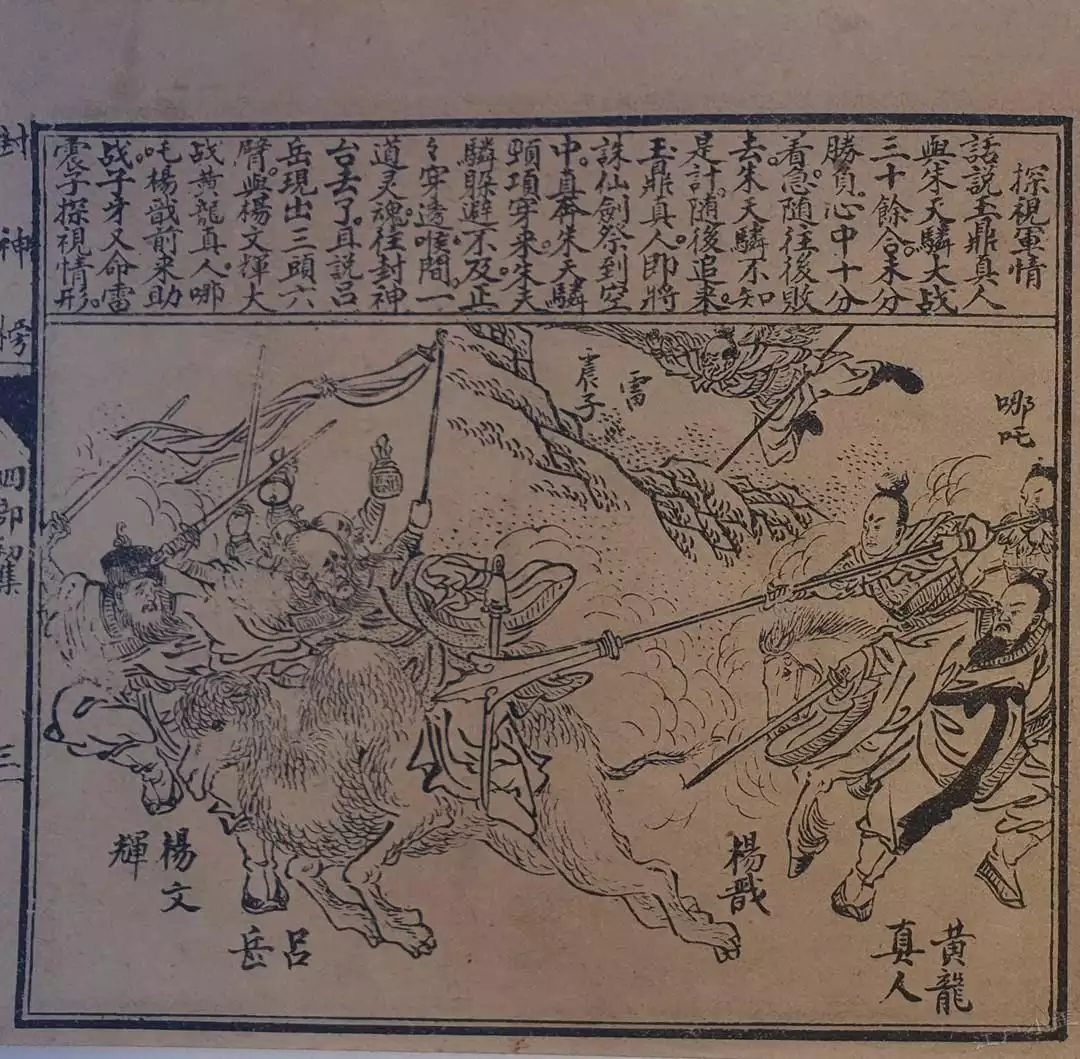 探視軍情
話說玉鼎真人
與朱天麟大战
三十餘合。未分
勝負。心中十分
着急。随往後敗
去。朱天麟不知
是計。随後追来。
玉鼎真人。即將
誅仙劍祭到空
中。真奔朱天麟
頸項穿来。朱天
麟躲避不及。正
々穿透喉間。一
道灵魂。往封神
台去了。且説吕
岳現出三頭六
臂。與楊文輝大
战黄龍真人。哪
吒楊戩前来助
战。子牙又命雷
震子探視情形。
雷震子
哪吒
楊戩
黃龍真人
吕岳
楊文輝
封神榜
四部初集
三